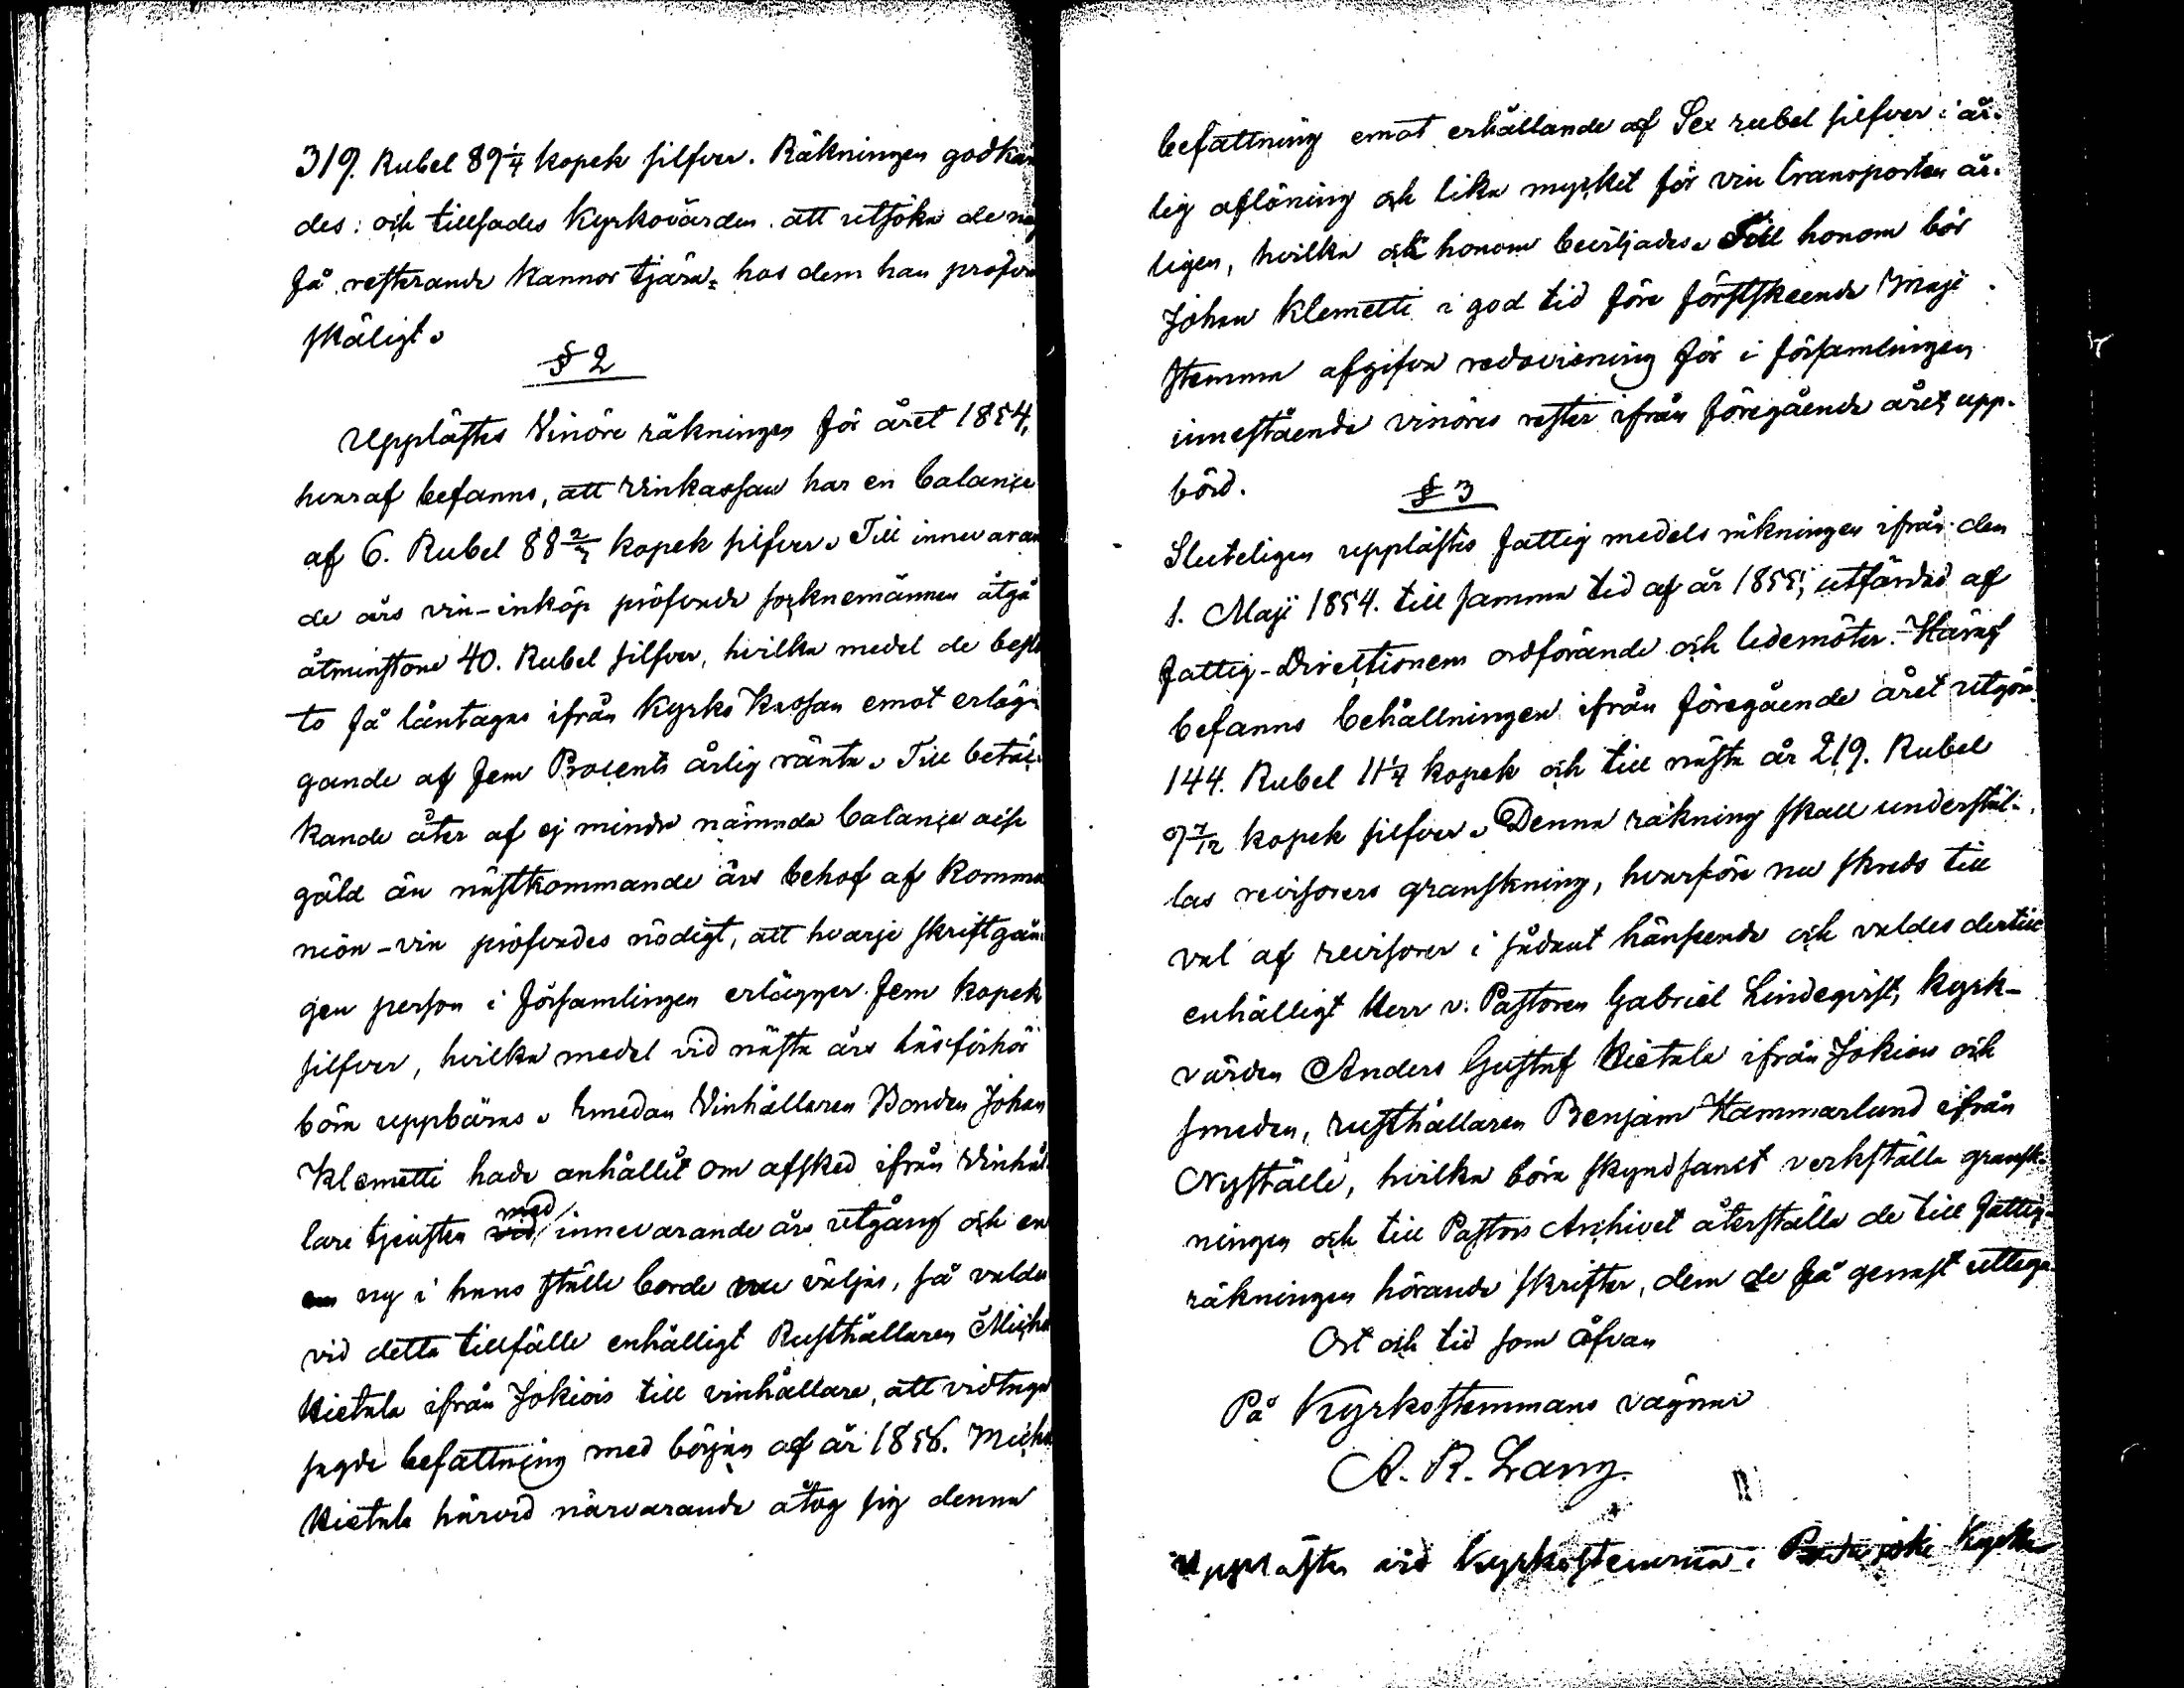 319. Rubel 89 1/4 kopek silfver. Räkningen godkän
des: och tillsades Kyrkovärden att utsöka de
få resterande kannor tjära, hos dem han pröfva
skäligt.
§ 2
Upplästes Vinöre räkningen för året 1854,
hvaraf befanns, att Vinkassan har en balance
af 6. Rubel 88 2/7 kopek silfver. Till innevaran
de års vin-inköp pröfvade socknemännen åtgå
åtminstone 40. Rubel silfver, hvilka medel de beslö
to få låntagas ifrån Kyrko Kassan emot erläg-
gande af fem Procents årlig ränta. Till betäc-
kande åter af ej mindre nämnda balance
gäld än nästkommande års behof af Kommu
nion-vin pröfvades nödigt, att hvarje skriftgån-
gen person i församlingen erlägger fem kopek
silfver, hvilka medel vid nästa års läseförhör
böra uppbäras. Emedan Vinhållaren Bonden Johan
Klemetti hade anhållit om afsked ifrån Vinhål-
lare tjensten med innevarande års utgång och en
ny i hans ställe borde väljas, så valdes
vid detta tillfälle enhälligt Rusthållaren Micha
Kietala ifrån Jokiois till vinhållare, att vidtaga
sagde befattning med början af år 1856. Micha
Kietala härvid närvarande åtog sig denna
befattning emot erhållande af Sex rubel silfver i år-
lig aflöning och lika mycket för vin transporten år-
ligen, hvilka och honom beviljades. Till honom bör
Johan Klemetti i god tid före förstskeende Maji
stemma afgifva redovisning för i församlingen
innestående vinöres rester ifrån föregående året upp-
börd.
§ 3
Sluteligen upplästes fattig medels räkningen ifrån den
1. Maji 1854. till samma tid af år 1855, utfärdad af
fattig-Directionens ordförande och ledemöter. Häraf
befanns behållningen ifrån föregående året utgöra
144. Rubel 11 1/4 kopek och till nästa år 219. Rubel
9 7/12 kopek silfver. Denna räkning skall understäl-
las revisorers granskning, hvarföre nu skreds till
val af revisorer i sådant hänseende och valdes dertill
enhälligt Herr v. Pastoren Gabriel Lindeqvist, kyrk-
värden Anders Gustaf Kietala ifrån Jokiois och
smeden, rusthållaren Benjam Hammarlund ifrån
Nyställe, hvilka böra skyndsamt verkställa gransk-
ningen och till Pastors Archivet återställa de till fattig-
räkningen hörande skrifter, dem de få genast uttaga.
Ort och tid som åfvan
På Kyrkostemmans vägnar
A. R. Lang.
Upplästes vid kyrkostemma i Kyrka